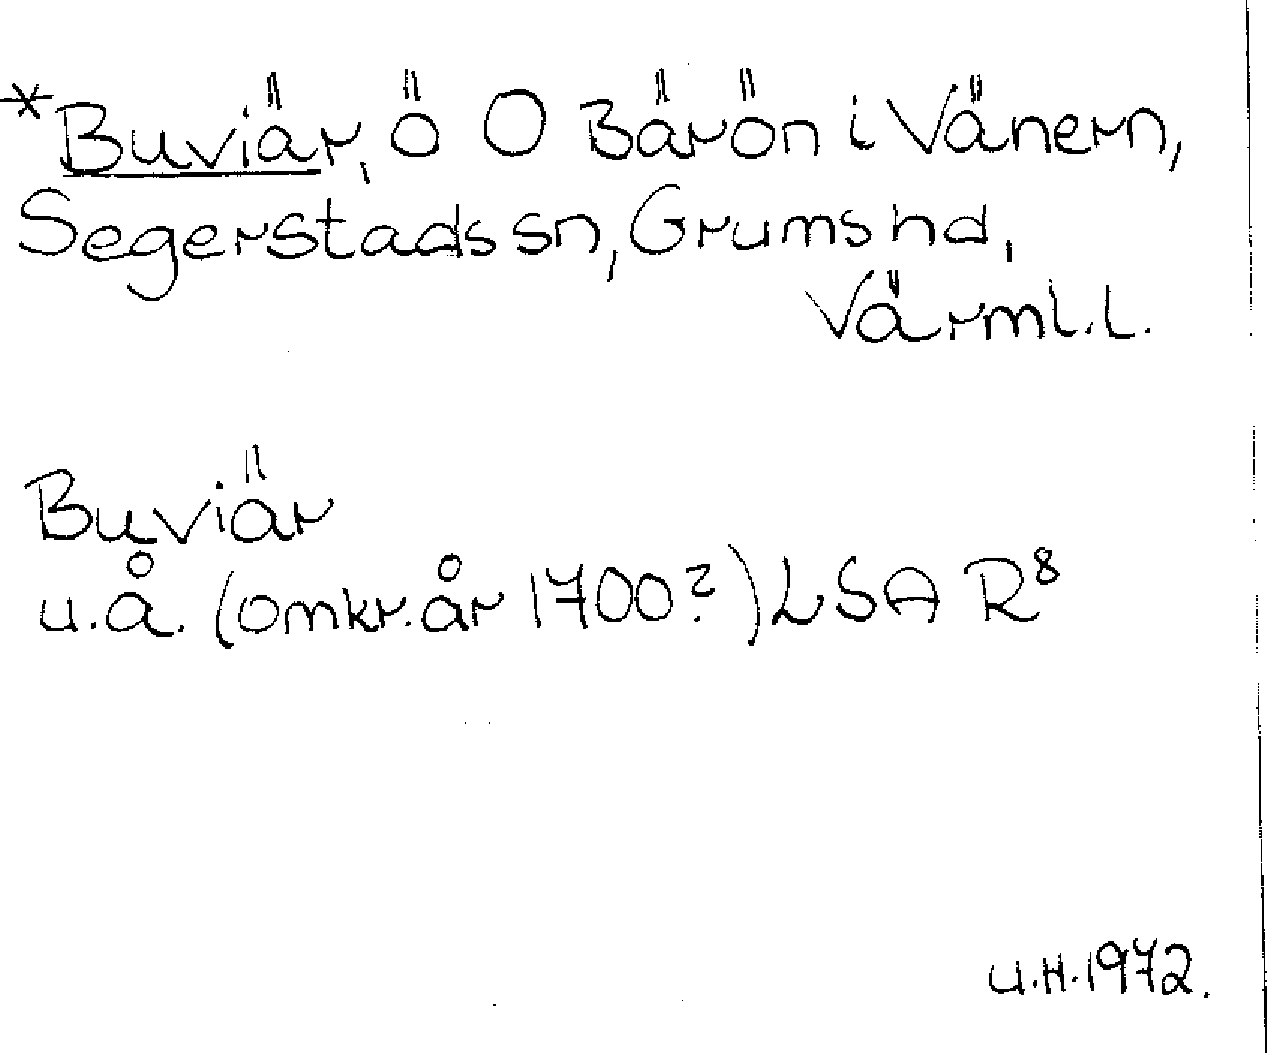 *Buviär, ö O Bärön i Vänern,
Segerstads sn, Grums hd,
Värml. l.
Buviär
u.å. (omkr. år 1700?) LSA R⁸
U.H. 1972.